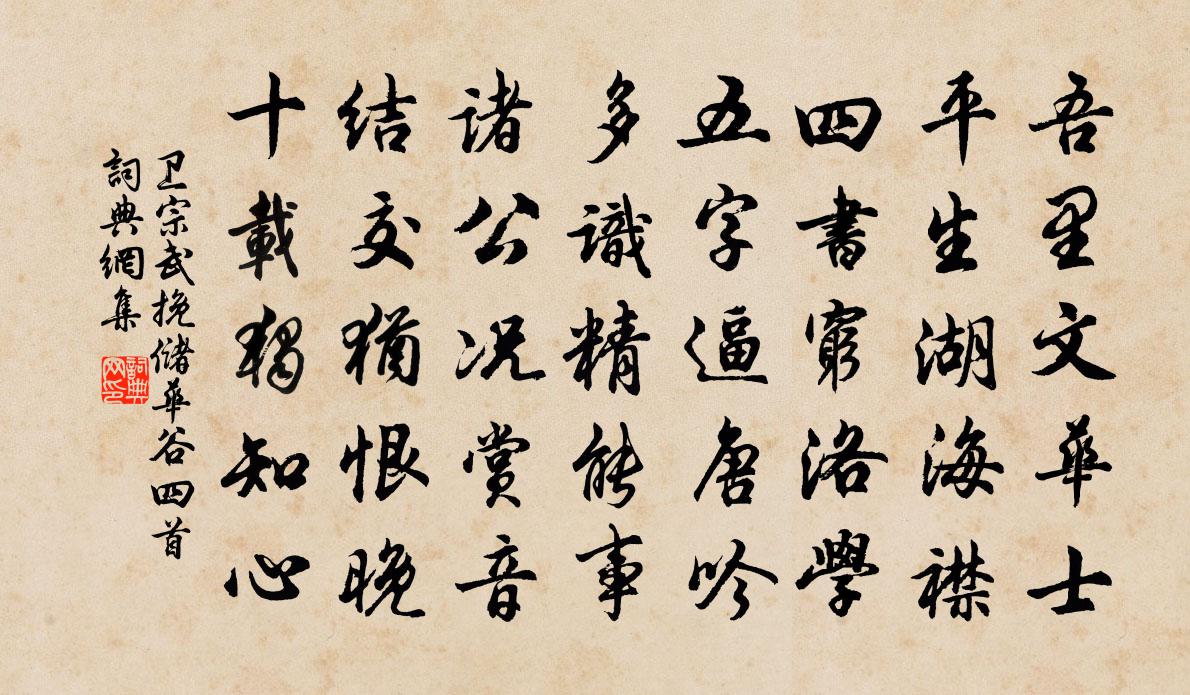 吾里文華士
平生湖海襟
四書窮洛學
五字逼唐吟
多識精能事
諸公况賞音
结交猶恨晚
十載獨知心
卫宗武挽儲華谷四首
詞典網集
詞典网印